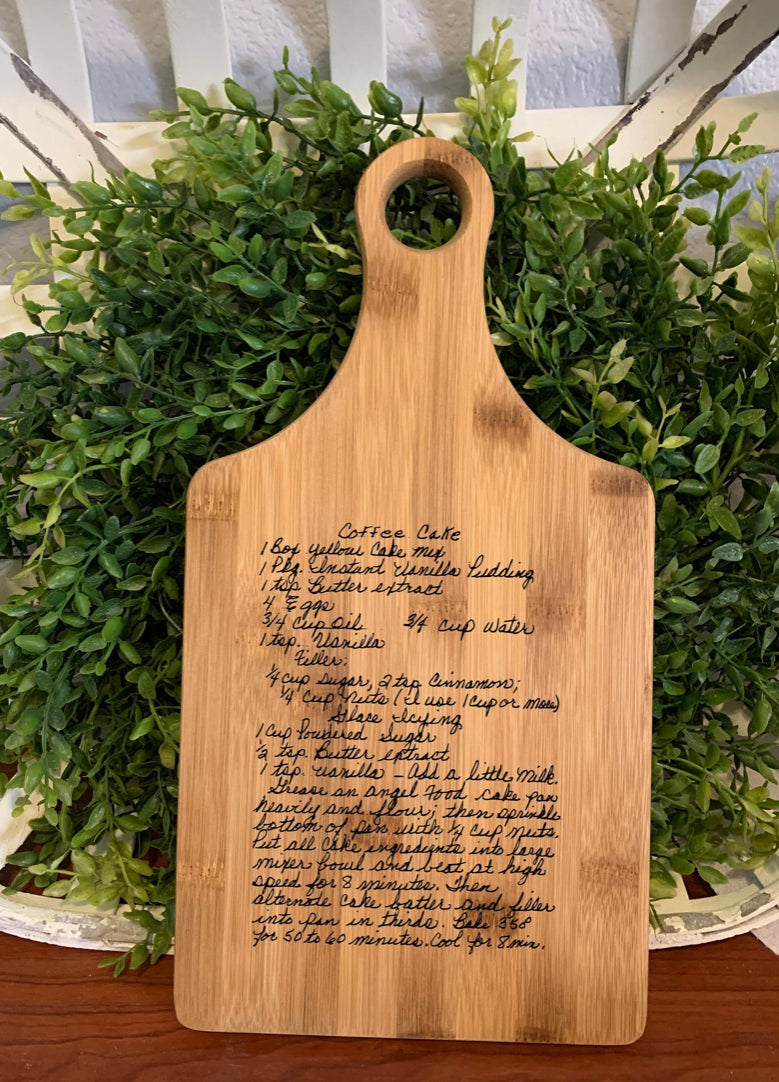 Coffee Cake
1 Box yellow Cake mix
1 Pkg. Instant Vanilla Pudding
1 tsp Butter extract
4 Eggs
3/4 cup Oil 3/4 cup water
1 tsp. Vanilla
Filler:
1/4 cup sugar, 2 tsp Cinnamon;
1/4 cup nuts (I use 1 cup or more)
Glace Icying
1 cup Powdered sugar
1/2 tsp. Butter extract
1 tsp. vanilla - Add a little milk.
Grease an angel Food cake pan
heavily and flour; then sprinkle
bottom of pan with 1/4 cup nuts.
Put all cake ingredients into large
mixer bowl and beat at high
speed for 8 minutes. Then
alternate cake batter and filler
into pan in thirds. Bake 358
for 50 to 60 minutes. Cool for 8 min.